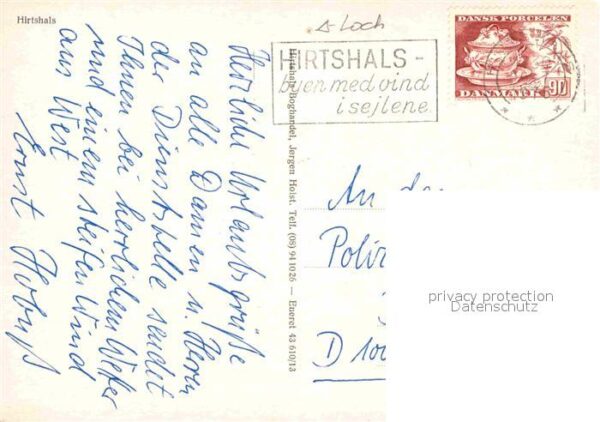 Hirtshals
Herzliche Urlaubsgrüße
an alle Damen u. Herrn
der Dienststelle sendet
Ihnen bei herrlichem Wetter
und einem steifen Wind
aus West
Ernst
Hirtshals Boghandel, Jørgen Holst. Telf. (08) 94 10 26 — Eneret 43 610/13
Loch
HIRTSHALS -
byen med vind
i sejlene
DANSK PORCELÆN
DANMARK 90
An das
Poliz
D 100
privacy protection
Datenschutz